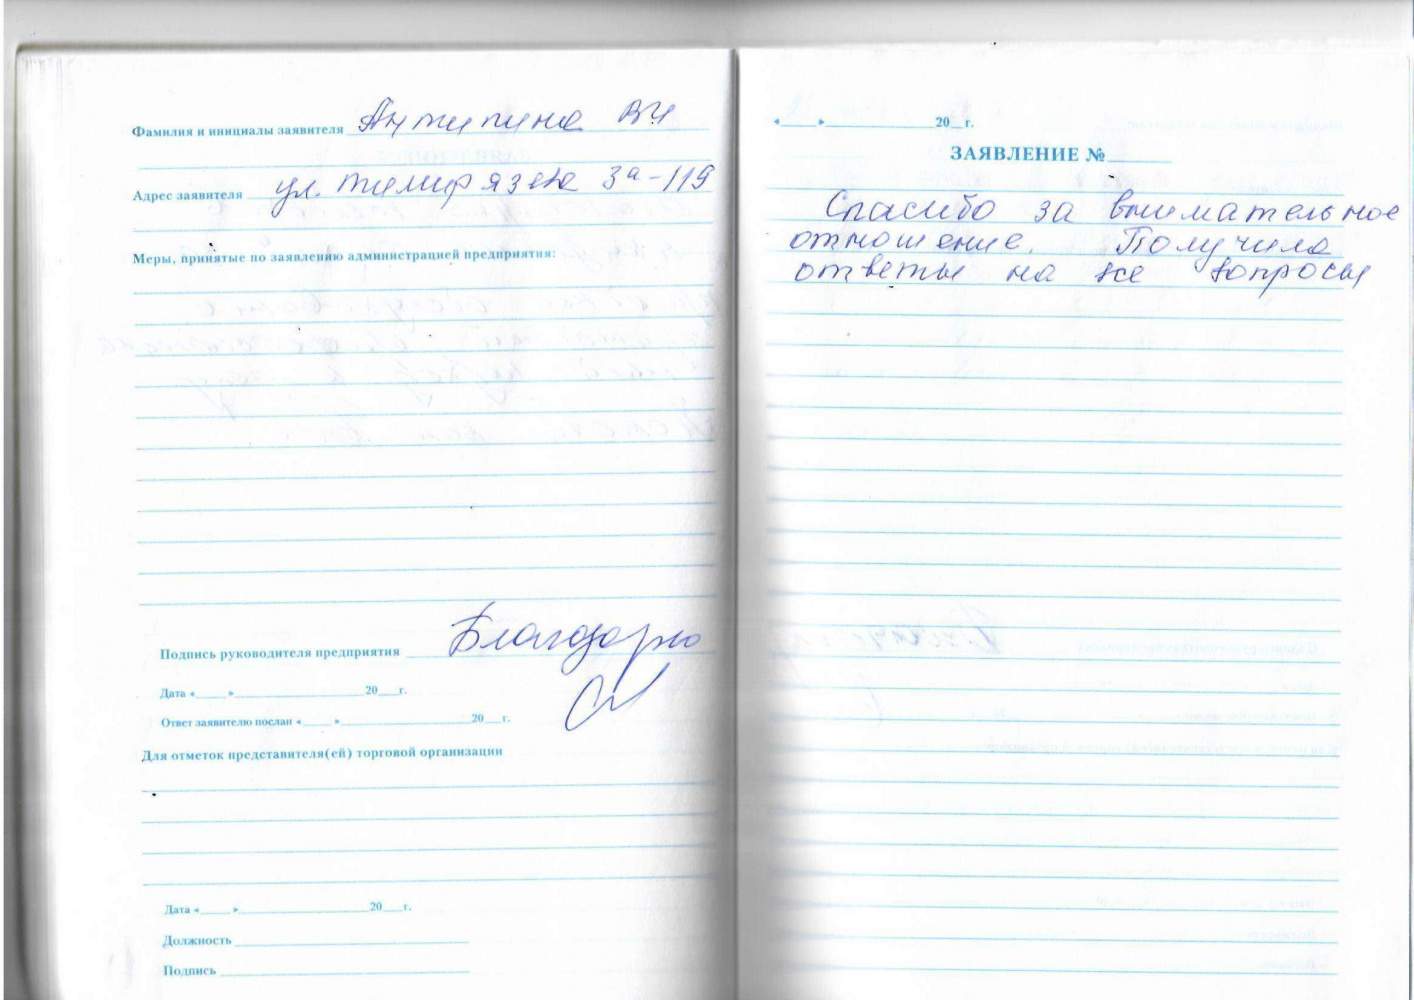 Фамилия и инициалы заявителя Антипина ВИ
Адрес заявителя ул. Тимирязева 3а-119
Меры, принятые по заявлению администрацией предприятия:
Благодарю
Подпись руководителя предприятия
Дата «____» ____________ 20__г.
Ответ заявителю послан «____» ____________ 20__г.
Для отметок представителя(ей) торговой организации
Дата «____» ____________ 20__г.
Должность
Подпись
«____» ____________ 20__г.
ЗАЯВЛЕНИЕ №
Спасибо за внимательное
отношение. Получила
ответы на все вопросы